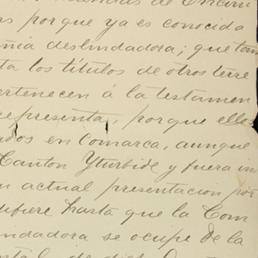 as porque ya es conocida
ñia deslindadora; que tam
ta los títulos de otros terre
ertenecen á la testamen
epresenta, porque ellos
ados en Comarca, aunque
Canton Yturbide y fuera in
n actual presentacion por
difiere hasta que la Com
ndadora se ocupe de la